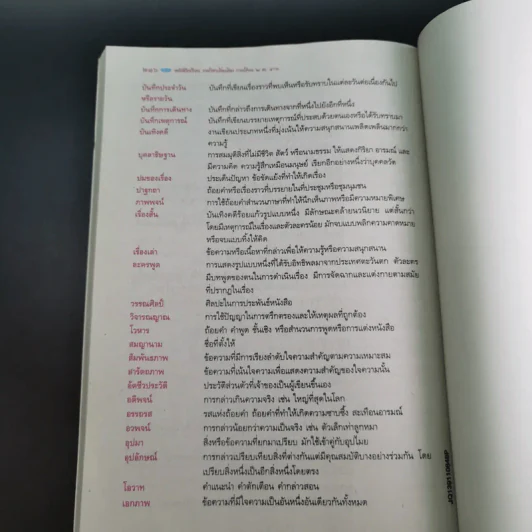 บันทึกประจำวัน บันทึกที่เขียนเรื่องราวที่พบเห็นหรือรับทราบในแต่ละวันต่อเนื่องกันไป
หรือรายวัน
บันทึกการเดินทาง บันทึกที่กล่าวถึงการเดินทางจากที่หนึ่งไปยังอีกที่หนึ่ง
บันทึกเหตุการณ์ บันทึกที่เขียนบรรยายเหตุการณ์ที่ประสบด้วยตนเองหรือได้รับทราบมา
บันเทิงคดี งานเขียนประเภทหนึ่งที่มุ่งเน้นให้ความสนุกสนานเพลิดเพลินมากกว่า
ความรู้
บุคลาธิษฐาน การสมมุติสิ่งที่ไม่มีชีวิต สัตว์ หรือนามธรรม ให้แสดงกิริยา อารมณ์ และ
มีความคิด ความรู้สึกเหมือนมนุษย์ เรียกอีกอย่างหนึ่งว่าบุคคลวัต
ปมของเรื่อง ประเด็นปัญหา ข้อขัดแย้งที่ทำให้เกิดเรื่อง
ปาฐกถา ถ้อยคำหรือเรื่องราวที่บรรยายในที่ประชุมหรือชุมนุมชน
ภาพพจน์ การใช้ถ้อยคำสำนวนภาษาที่ทำให้นึกเห็นภาพหรือมีความหมายพิเศษ
เรื่องสั้น บันเทิงคดีร้อยแก้วรูปแบบหนึ่ง มีลักษณะคล้ายนวนิยาย แต่สั้นกว่า
โดยมีเหตุการณ์ในเรื่องและตัวละครน้อย มักจบแบบพลิกความคาดหมาย
หรือจบแบบทิ้งให้คิด
เรื่องเล่า ข้อความหรือเนื้อหาที่กล่าวเพื่อให้ความรู้หรือความสนุกสนาน
ละครพูด การแสดงรูปแบบหนึ่งที่ได้รับอิทธิพลมาจากประเทศตะวันตก ตัวละคร
มีบทพูดของตนในการดำเนินเรื่อง มีการจัดฉากและแต่งกายตามสมัย
ที่ปรากฏในเรื่อง
วรรณศิลป์ ศิลปะในการประพันธ์หนังสือ
วิจารณญาณ การใช้ปัญญาในการตรึกตรองและให้เหตุผลที่ถูกต้อง
โวหาร ถ้อยคำ คำพูด ชั้นเชิง หรือสำนวนการพูดหรือการแต่งหนังสือ
สมญานาม ชื่อที่ตั้งให้
สัมพันธภาพ ข้อความที่มีการเรียงลำดับใจความสำคัญตามความเหมาะสม
สารัตถภาพ ข้อความที่เน้นใจความเพื่อแสดงความสำคัญของใจความนั้น
อัตชีวประวัติ ประวัติส่วนตัวที่เจ้าของเป็นผู้เขียนขึ้นเอง
อติพจน์ การกล่าวเกินความจริง เช่น ใหญ่ที่สุดในโลก
อรรถรส รสแห่งถ้อยคำ ถ้อยคำที่ทำให้เกิดความซาบซึ้ง สะเทือนอารมณ์
อวพจน์ การกล่าวน้อยกว่าความเป็นจริง เช่น ตัวเล็กเท่าลูกหมา
อุปมา สิ่งหรือข้อความที่ยกมาเปรียบ มักใช้เข้าคู่กับอุปไมย
อุปลักษณ์ การกล่าวเปรียบเทียบสิ่งที่ต่างกันแต่มีคุณสมบัติบางอย่างร่วมกัน โดย
เปรียบสิ่งหนึ่งเป็นอีกสิ่งหนึ่งโดยตรง
โอวาท คำแนะนำ คำตักเตือน คำกล่าวสอน
เอกภาพ ข้อความที่มีใจความเป็นอันหนึ่งอันเดียวกันทั้งหมด